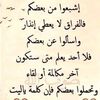 إشبعوا من بعضكم
فالفراق لا يعطي إنذار
واسألوا عن بعضكم
فلا أحد يعلم متى ستكون
آخر مكالمة أو لقاء
وتحملوا بعضكم فإن كلمة ياليت